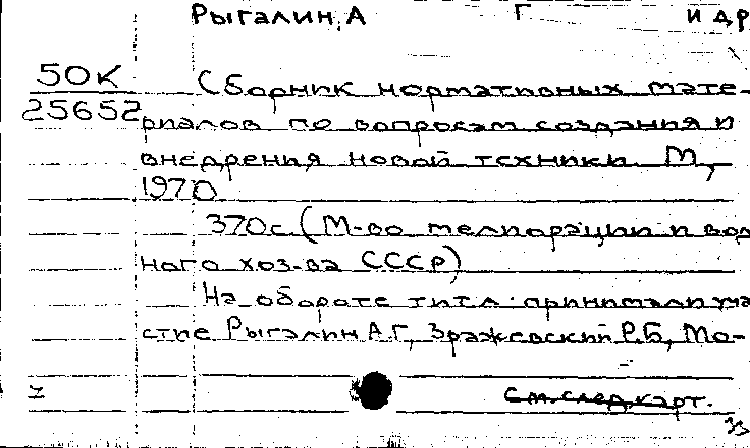 Рыгалин, А Г и др
50К
25652
Сборник нормативных мате-
риалов по вопросам создания и
внедрения новой техники. М.,
1970
370с. (М-во мелиорации и вод
ного хоз-ва СССР)
На обороте тит.л. принимали уча
стие Рыгалин А.Г., Зражевский Р.Б., Мо-
См.след.карт.